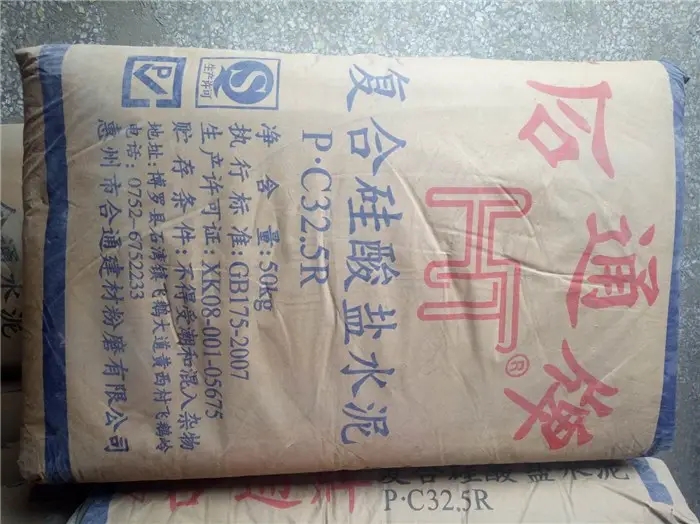 合通牌
HT®
复合硅酸盐水泥
P·C32.5R
净含量:50kg
执行标准:GB175-2007
生产许可证:XK08-001-05675
贮存条件:不得受潮和混入杂物
地址:博罗县石湾镇飞鹅大道黄西村飞鹅岭
电话:0752-6752233
惠州市合通建材粉磨有限公司
生产许可
P
复合硅酸盐水泥
P·C32.5R
水泥